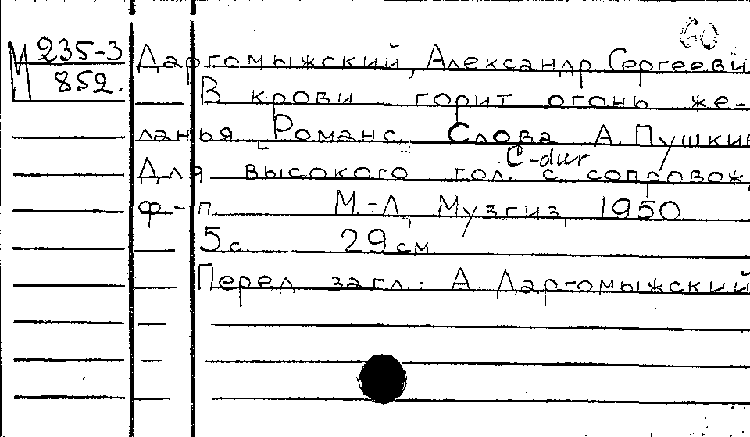 60
М 235-3
852.
Даргомыжский, Александр Сергееви
В крови горит огонь же-
ланья. Романс. Слова А. Пушкин
C-dur
Для высокого гол. с сопровож.
ф-п. М.-Л., Музгиз, 1950
5 с. 29 см
Перед загл.: А. Даргомыжский